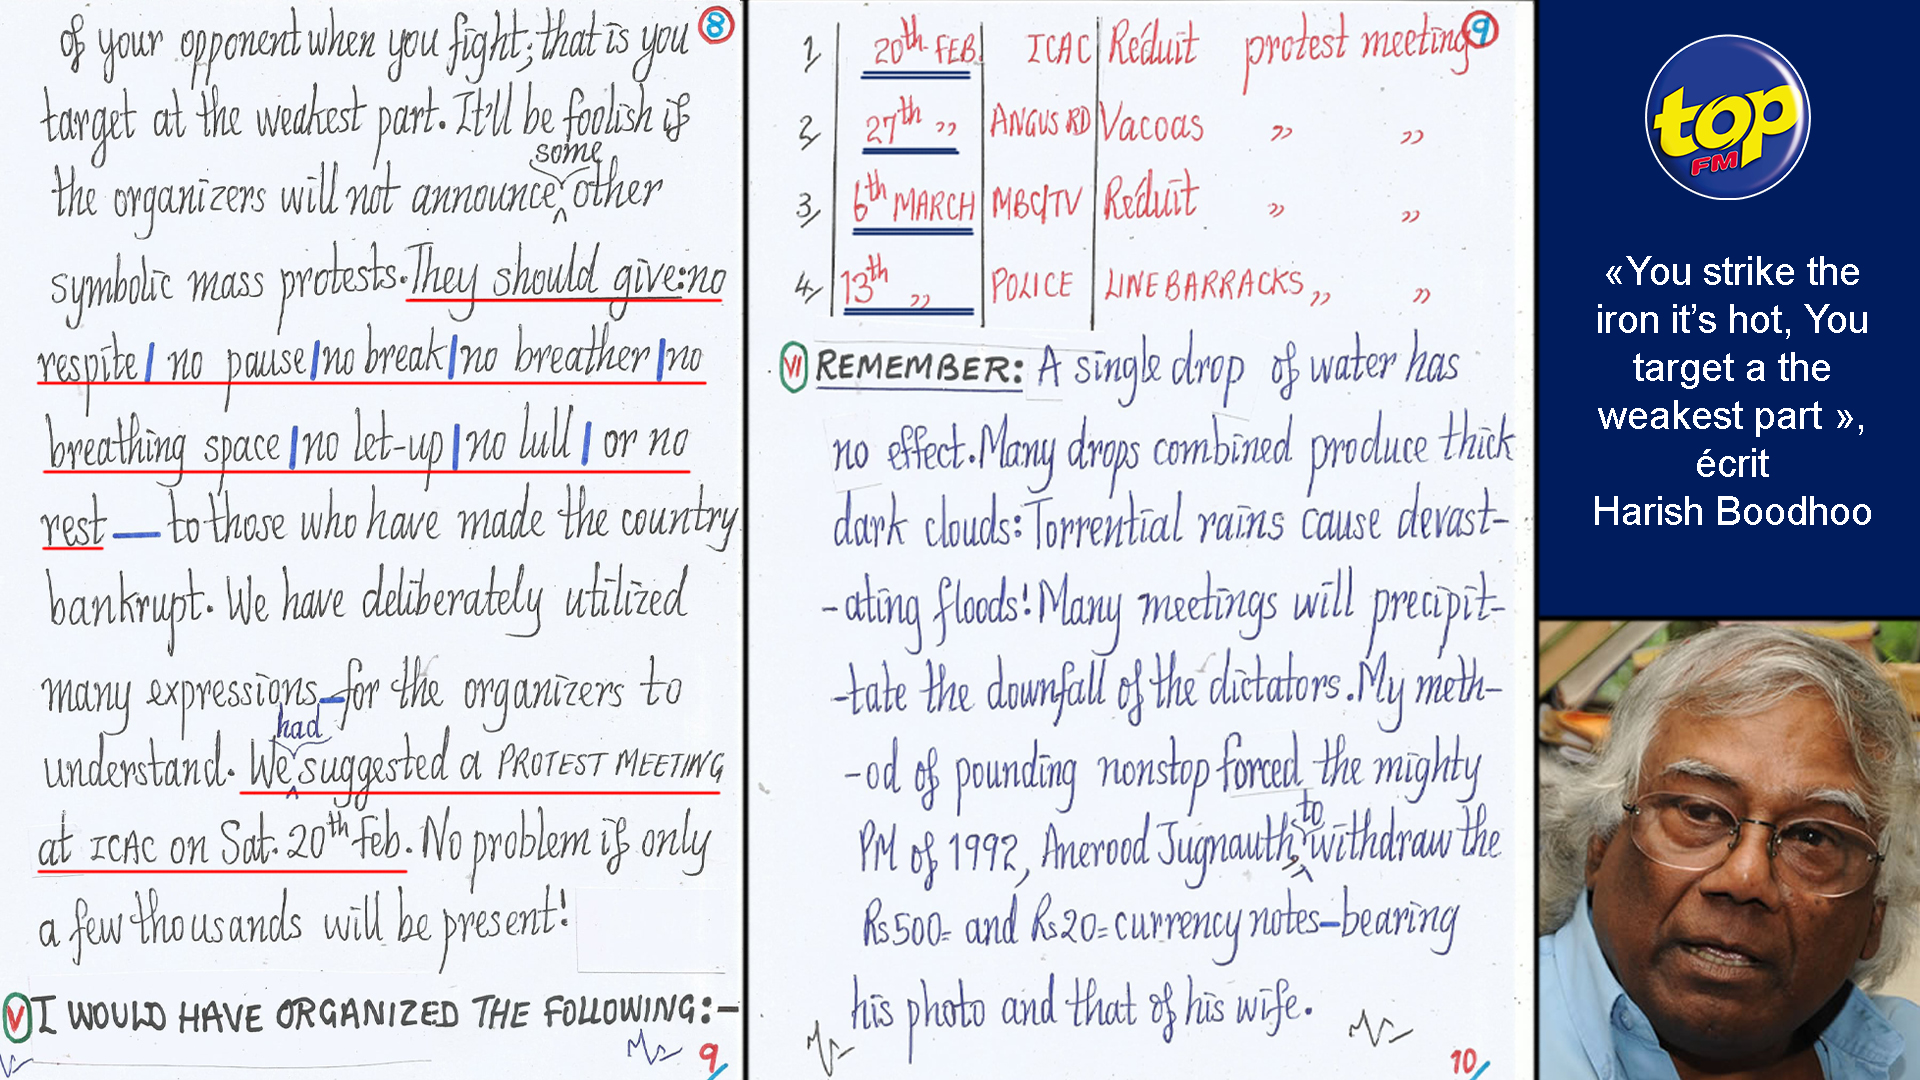 8
of your opponent when you fight; that is you
target at the weakest part. It'll be foolish if
some
the organizers will not announce other
symbolic mass protests. They should give: no
respite / no pause / no break / no breather / no
breathing space / no let-up / no lull / or no
rest — to those who have made the country
bankrupt. We have deliberately utilized
many expressions – for the organizers to
had
understand. We suggested a PROTEST MEETING
at ICAC on Sat. 20th Feb. No problem if only
a few thousands will be present!
V I WOULD HAVE ORGANIZED THE FOLLOWING:-
9/
9
1/ 20th FEB. ICAC Réduit protest meeting
2/ 27th " ANGUS RD Vacoas " "
3/ 6th MARCH MBC/TV Réduit " "
4/ 13th " POLICE LINE BARRACKS " "
VI REMEMBER: A single drop of water has
no effect. Many drops combined produce thick
dark clouds: Torrential rains cause devast-
-ating floods! Many meetings will precipit-
-tate the downfall of the dictators. My meth-
-od of pounding nonstop forced the mighty
to
PM of 1992, Anerood Jugnauth, withdraw the
Rs500= and Rs20= currency notes – bearing
his photo and that of his wife.
10/
top
FM
«You strike the
iron it's hot, You
target a the
weakest part »,
écrit
Harish Boodhoo